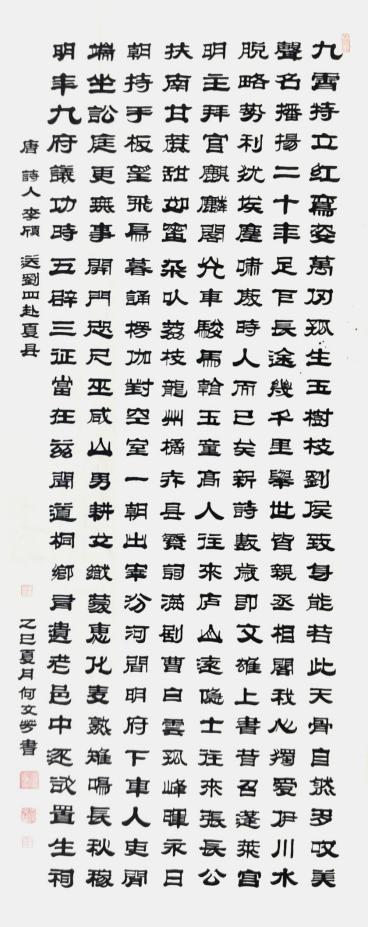 九霄特立红鸞姿萬仞孤生玉樹枝劉侯致身能若此天骨自然多歎美
聲名播揚二十年足下長途幾千里舉世皆親丞相閣我心獨愛伊川水
脫略勢利犹埃塵嘯傲時人而已矣新詩數歲即文雄上書昔召蓬萊宮
明主拜官麒麟閣光車駿馬翰玉童高人往來庐山遠隱士往來張長公
扶南甘蔗甜如蜜雜以荔枝龍州橘赤县繁詞滿劇曹白雲孤峰暉永日
朝持手板望飛鳥暮誦楞伽對空室一朝出宰汾河間明府下車人吏閒
端坐訟庭更無事開門咫尺巫咸山男耕女織蒙惠化麦熟雉鳴長秋稼
明年九府議功時五辟三征當在兹聞道桐鄉有遺老邑中逐欲置生祠
唐 詩人 李頎 送劉四赴夏县
乙巳夏月何文書